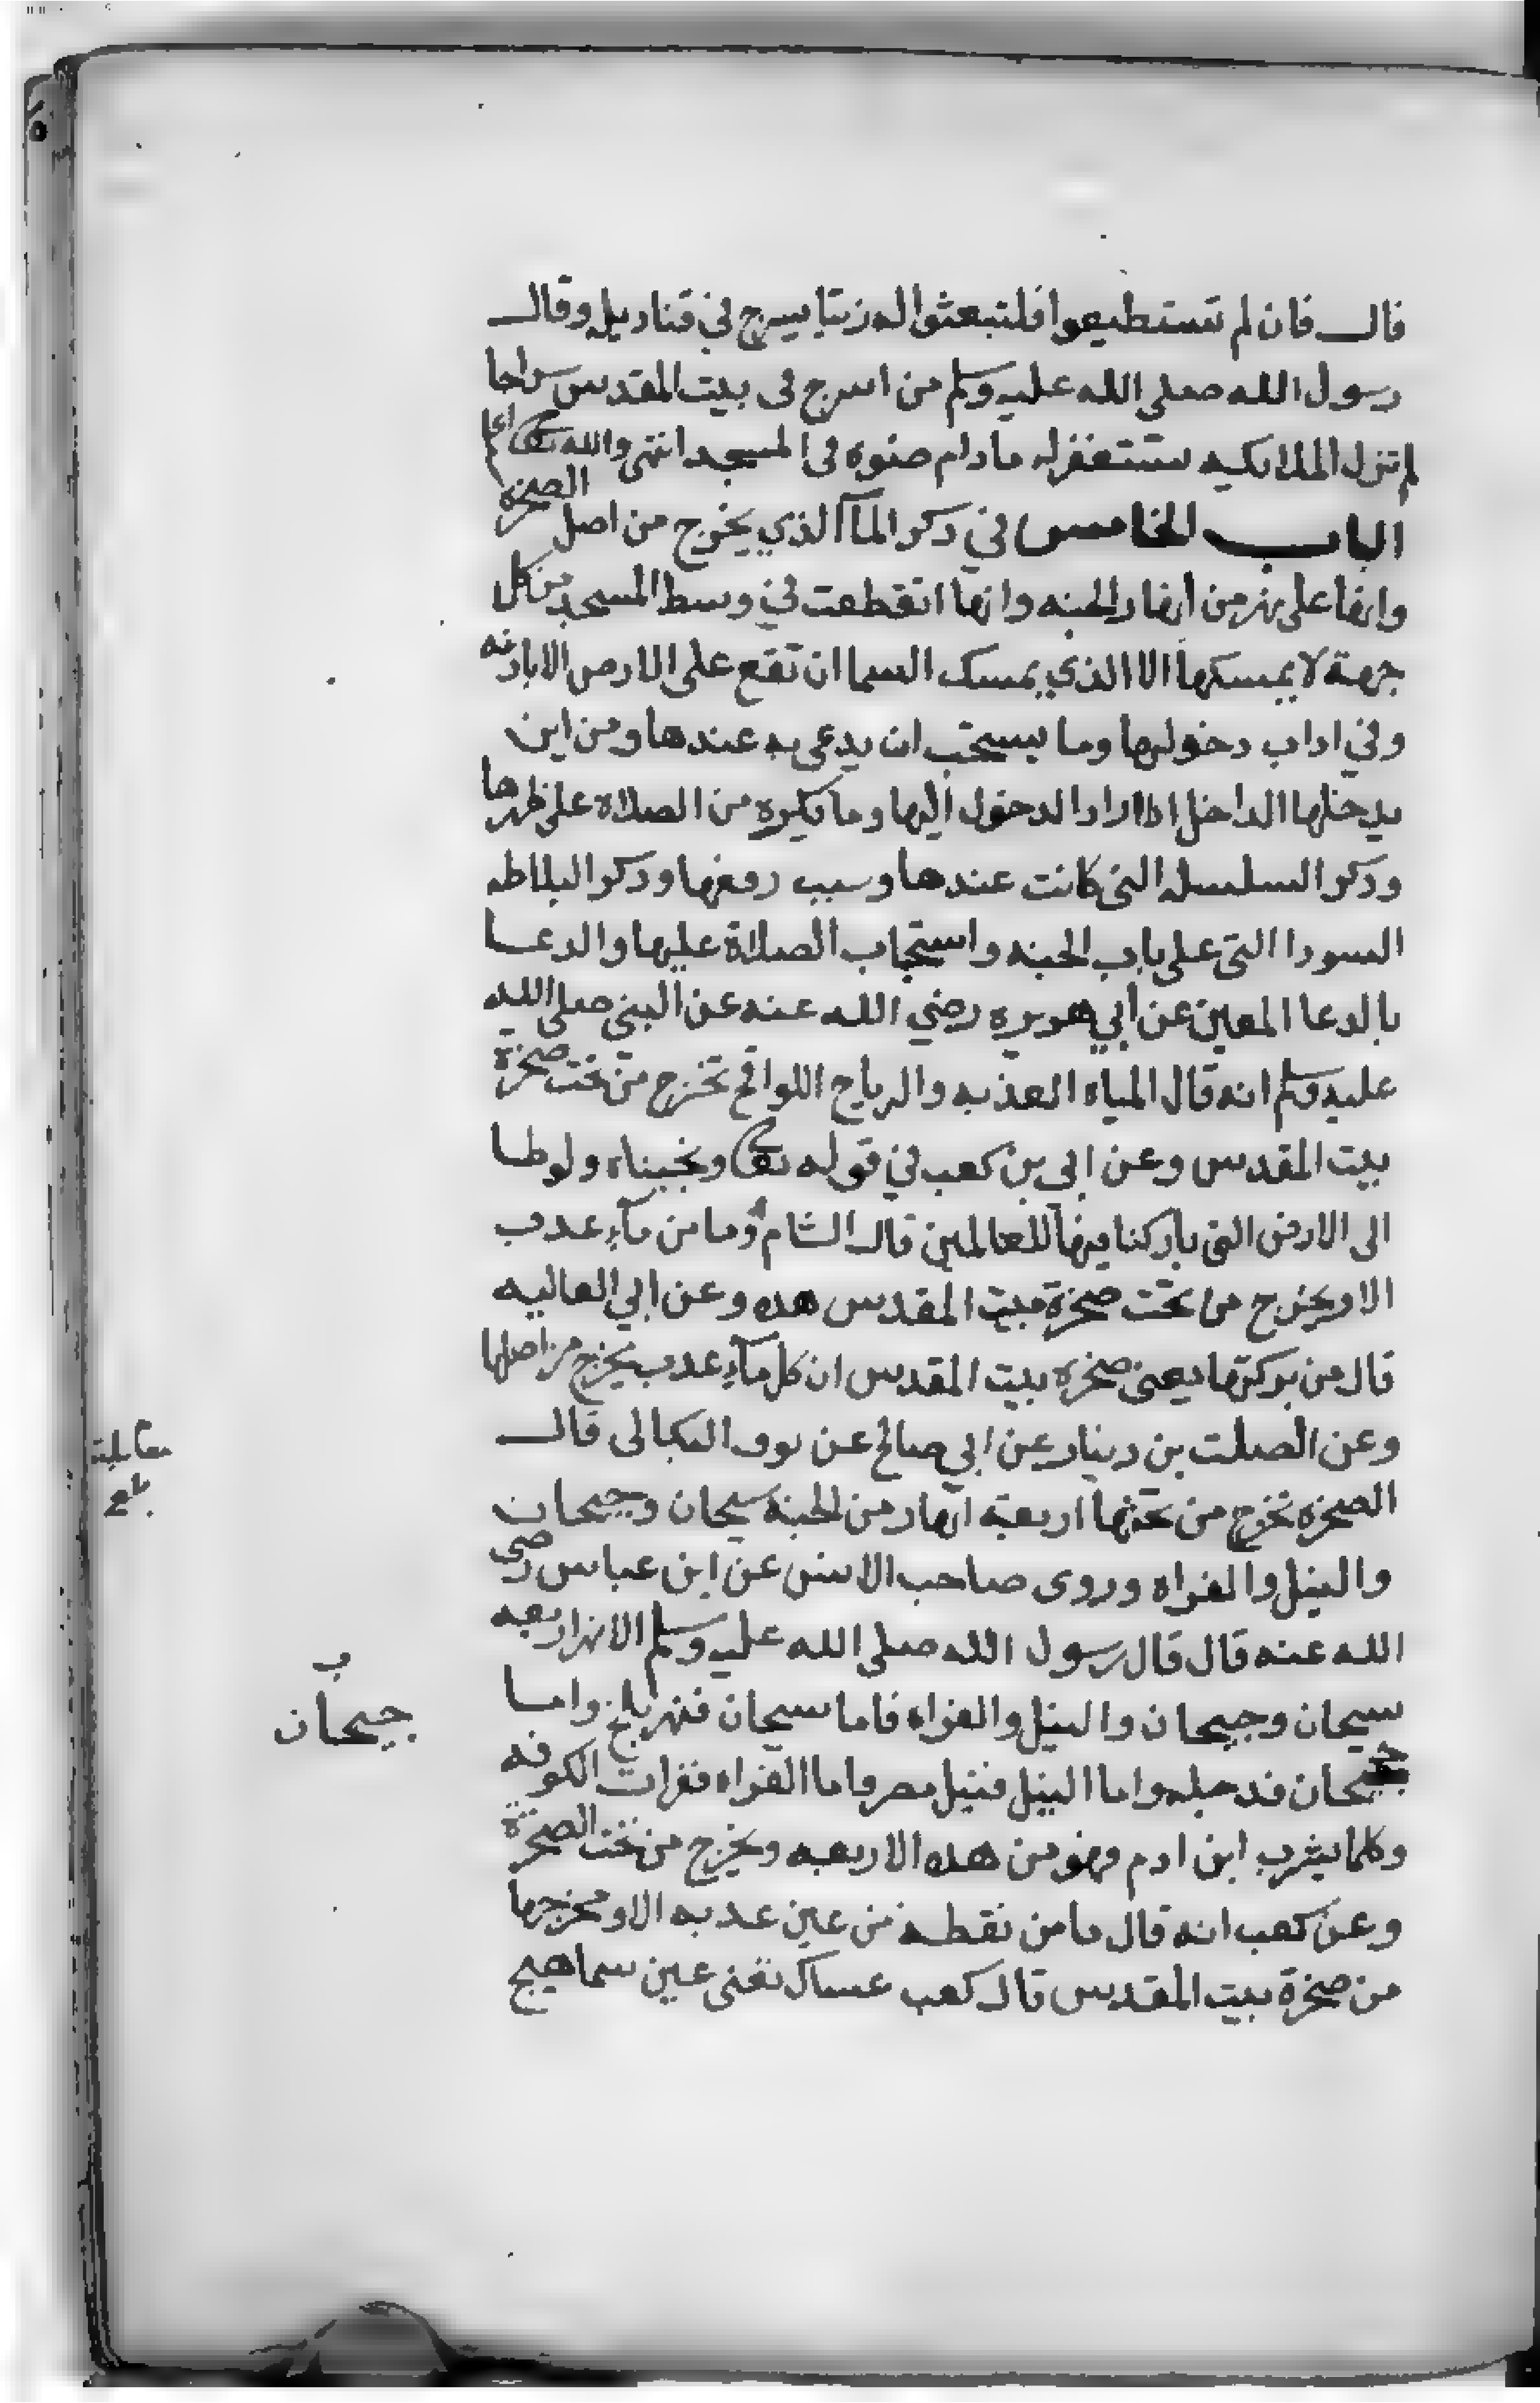 قال فان لم تستطيعوا فلتبعثوا له زيتا يسرج في قناديله وقال
رسول الله صلى الله عليه وسلم من اسرج في بيت المقدس سراجا
لم تزل الملائكه تستغفر له ما دام ضوه في المسجد انتهى والله تعالى اعلم
الباب الخامس في ذكر المآ الذي يخرج من اصل الصخره
وانها على نهر من انهار الجنه وانها انقطعت في وسط المسجد من كل
جهة لا يمسكها الا الذي يمسك السما ان تقع على الارض الا باذنه
وفي اداب دخولها وما يستحب ان يدعى به عندها ومن اين
يدخلها الداخل اذا اراد الدخول اليها وما يكره من الصلاة على ظهرها
وذكر السلسله التي كانت عندها وسبب رفعها وذكر البلاطه
السودا التي على باب الجنه واستحباب الصلاة عليها والدعا
بالدعا المعين عن أبي هريره رضي الله عنه عن النبي صلى الله
عليه وسلم انه قال المياه العذبه والرياح اللواقح تخرج من تحت صخرة
بيت المقدس وعن ابي بن كعب في قوله تعالى ونجيناه ولوطا
الى الارض التي باركنا فيها للعالمين قال الشام وما من مآء عذب
الا ويخرج من تحت صخرة بيت المقدس هذه وعن ابي العاليه
قال من بركتها يعني صخره بيت المقدس ان كل مآء عذب يخرج من اصلها
وعن الصلت بن دينار عن ابي صالح عن نوف البكالى قال
الصخره تخرج من تحتها اربعة انهار من الجنة سيحان وجيحان
والنيل والفراه وروى صاحب الانس عن ابن عباس رضي
الله عنه قال قال رسول الله صلى الله عليه وسلم الانهار اربعه
سيحان وجيحان والنيل والفراه فاما سيحان فنهر بلخ واما
جيحان فدجله واما النيل فنيل مصر واما الفراه ففرات الكوفه
وكلما يشرب ابن ادم فهو من هذه الاربعه ويخرج من تحت الصخرة
وعن كعب انه قال ما من نقطة من عين عذبه الا ومخرجها
من صخرة بيت المقدس قال كعب عساك تعني عين سماهيج
مقابلة
بلغ
ب
جيحان